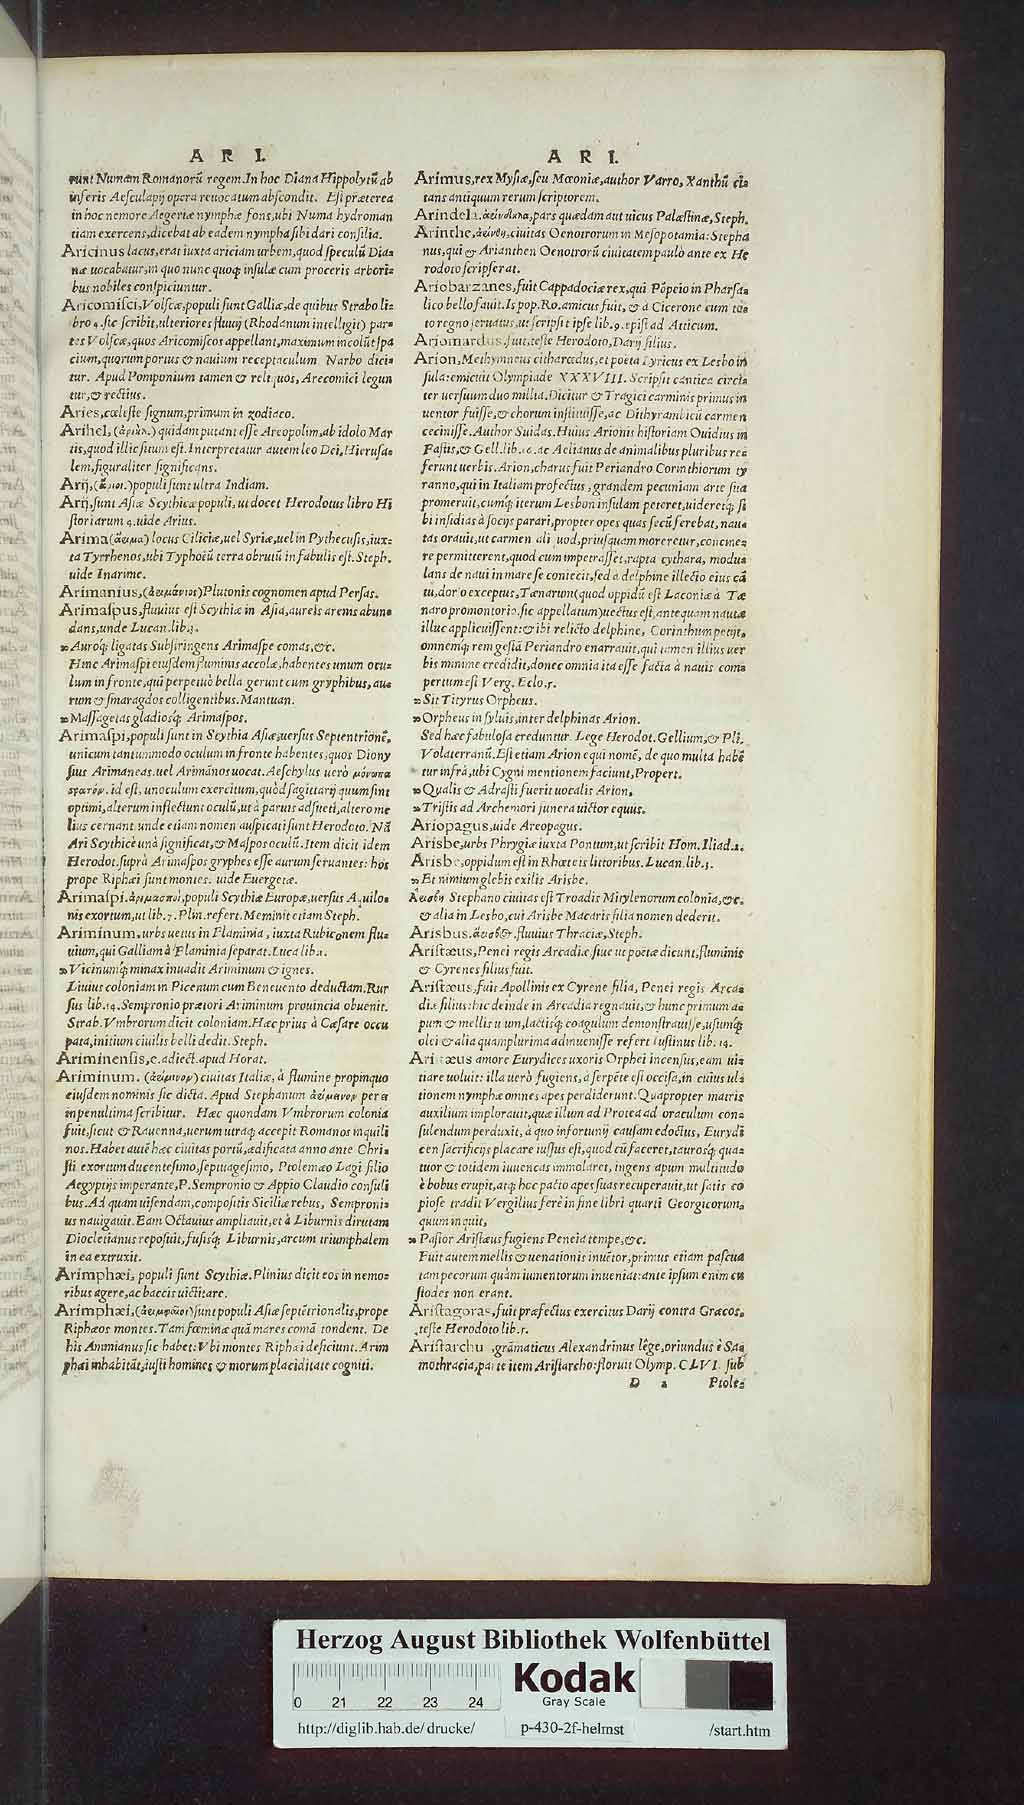 A R I.
runt Numam Romanorū regem. In hoc Diana Hippolytū ab
inferis Aesculapij opera reuocatum abscondit. Est præterea
in hoc nemore Aegeriæ nymphæ fons, ubi Numa hydroman
tiam exercens, dicebat ab eadem nympha sibi dari consilia.
Aricinus lacus, erat iuxta ariciam urbem, quod speculū Dia=
næ uocabatur, in quo nunc quoq; insulæ cum proceris arbori=
bus nobiles conspiciuntur.
Aricomisci, Volscæ, populi sunt Galliæ, de quibus Strabo li=
bro 4. sic scribit, ulteriores fluuij (Rhodanum intelligit) par=
tes Volscæ, quos Aricomiscos appellant, maximum incolūt spa
cium, quorum portus & nauium receptaculum Narbo dici=
tur. Apud Pomponium tamen & reliquos, Arecomici legun
tur, & rectius.
Aries, cœleste signum, primum in zodiaco.
Arihel, quidam putant esse Areopolim, ab idolo Mar
tis, quod illic situm est. Interpretatur autem leo Dei, Hierusa=
lem, figuraliter significans.
Arij, populi sunt ultra Indiam.
Arij, sunt Asiæ Scythicæ populi, ut docet Herodotus libro Hi
storiarum 4. uide Arius.
Arima (ἄριμα) locus Ciliciæ, uel Syriæ, uel in Pythecusis, iux=
ta Tyrrhenos, ubi Typhoëū terra obruiū in fabulis est. Steph.
uide Inarime.
Arimanius, (ἀριμάνιος) Plutonis cognomen apud Persas.
Arimaspus, fluuius est Scythiæ in Asia, aureis arenis abun=
dans, unde Lucan. lib. 3.
Auroq; ligatas Substringens Arimaspe comas, &c.
Hinc Arimaspi eiusdem fluminis accolæ, habentes unum ocu=
lum in fronte, qui perpetuò bella gerunt cum gryphibus, au=
rum & smaragdos colligentibus. Mantuan.
Massagetas gladiosq; Arimaspos.
Arimaspi, populi sunt in Scythia Asiæ, uersus Septentrionē,
unicum tantummodo oculum in fronte habentes, quos Diony
sius Arimaneas. uel Arimānos uocat. Aeschylus uerò μόνωπα
στρατόν. id est, unoculum exercitum, quòd sagittarij quum sint
optimi, alterum inflectunt oculū, ut à paruis adsueti, altero me
lius cernant unde etiam nomen auspicati sunt Herodoto. Nā
Ari Scythicè unā significat, & Maspos oculū. Item dicit idem
Herodot. suprà Arimaspos gryphes esse aurum seruantes: hos
prope Riphæi sunt montes. uide Euergetæ.
Arimaspi. ἀριμασποὶ, populi Scythiæ Europæ, uersus Aquilo=
nis exortum, ut lib. 7. Plin. refert. Meminit etiam Steph.
Ariminum, urbs uetus in Flaminia, iuxta Rubiconem flu=
uium, qui Galliam à Flaminia separat. Luca lib. 1.
Vicinumq; minax inuadit Ariminum & ignes.
Liuius coloniam in Picenum cum Beneuento deductam. Rur
sus lib. 14. Sempronio prætori Ariminum prouincia obuenit.
Strab. Vmbrorum dicit coloniam. Hæc prius à Cæsare occu
pata, initium ciuilis belli dedit. Steph.
Ariminensis, e. adiect. apud Horat.
Ariminum. (ἀρίμινον) ciuitas Italiæ, à flumine propinquo
eiusdem nominis sic dicta. Apud Stephanum ἀρίμενον per ε
in penultima scribitur. Hæc quondam Vmbrorum colonia
fuit, sicut & Rauenna, uerum utraq; accepit Romanos inquili
nos. Habet autē hæc ciuitas portū, ædificata anno ante Chri=
sti exortum ducentesimo, septuagesimo, Ptolemæo Lagi filio
Aegyptijs imperante, P. Sempronio & Appio Claudio consuli
bus. Ad quam uisendam, compositis Siciliæ rebus, Semproni=
us nauigauit. Eam Octauius ampliauit, et à Liburnis dirutam
Diocletianus reposuit, fusisq; Liburnis, arcum triumphalem
in ea extruxit.
Arimphæi, populi sunt Scythiæ. Plinius dicit eos in nemo=
ribus agere, ac baccis uictitare.
Arimphæi, (ἀριμφαῖοι) sunt populi Asiæ septētrionalis, prope
Riphæos montes. Tam fœminæ quā mares comā tondent. De
his Ammianus sic habet: Vbi montes Riphæi deficiunt. Arim
phæi inhabitāt, iusti homines & morum placiditate cogniti.
A R I.
Arimus, rex Mysiæ, seu Mœoniæ, author Varro, Xanthū ci=
tans antiquum rerum scriptorem.
Arindela. ἀρίνδηλα, pars quædam aut uicus Palæstinæ, Steph.
Arinthe, ἀρίνθη, ciuitas Oenotrorum in Mesopotamia: Stepha
nus, qui & Arianthen Oenotrorū ciuitatem paulò ante ex He
rodoto scripserat.
Ariobarzanes, fuit Cappadociæ rex, qui Pōpeio in Pharsa=
lico bello fauit. Is pop. Ro. amicus fuit, & à Cicerone cum to=
to regno seruatus, ut scripsit ipse lib. 9. epist ad Atticum.
Ariomardus, fuit, teste Herodoto, Darij filius.
Arion, Methymneus citharœdus, et poëta Lyricus ex Lesbo in
sula: emicuit Olympiade XXXVIII. Scripsit cantica circi=
ter uersuum duo millia. Dicitur & Tragici carminis primus in
uentor fuisse, & chorum instituisse, ac Dithyrambicū carmen
cecinisse. Author Suidas. Huius Arionis historiam Ouidius in
Fastis, & Gell. lib. 16. ac Aelianus de animalibus pluribus re=
ferunt uerbis. Arion, charus fuit Periandro Corinthiorum ty
ranno, qui in Italiam profectus, grandem pecuniam arte sua
promeruit, cumq; iterum Lesbon insulam peteret, uideretq; si
bi insidias à socijs parari, propter opes quas secū ferebat, nau=
tas orauit, ut carmen aliquod, priusquam moreretur, concine=
re permitterent, quod cum impetrasset, rapta cythara, modu=
lans de naui in mare se coniecit, sed à delphine illecto eius cā
tu, dorso exceptus, Tænarum (quod oppidū est Laconiæ à Tæ
naro promontorio. sic appellatum) uectus est, antequam nautæ
illuc applicuissent: & ibi relicto delphine, Corinthum petijt,
omnemq; rem gestā Periandro enarrauit, qui tamen illius uer
bis minime credidit, donec omnia ita esse facta à nauis com=
pertum est Verg. Eclo. 5.
Sit Tityrus Orpheus.
Orpheus in syluis, inter delphinas Arion.
Sed hæc fabulosa creduntur. Lege Herodot. Gellium, & Pli.
Volaterranū. Est etiam Arion equi nomē, de quo multa habē
tur infrà, ubi Cygni mentionem faciunt, Propert.
Qualis & Adrasti fuerit uocalis Arion,
Tristis ad Archemori funera uictor equus.
Ariopagus, uide Areopagus.
Arisbe, urbs Phrygiæ iuxta Pontum, ut scribit Hom. Iliad. 2.
Arisbe, oppidum est in Rhœteis littoribus. Lucan. lib. 3.
Et nimium glebis exilis Arisbe.
Ἀρίσβη Stephano ciuitas est Troadis Mitylenorum colonia, &c.
& alia in Lesbo, cui Arisbe Macaris filia nomen dederit.
Arisbus. ἄρισβος. fluuius Thraciæ, Steph.
Aristæus, Penei regis Arcadiæ siue ut poëtæ dicunt, fluminis
& Cyrenes filius fuit.
Aristæus, fuit Apollinis ex Cyrene filia, Penei regis Arca=
diæ filius: hic deinde in Arcadia regnauit, & hunc primum a=
pum & mellis usum, lactisq; coagulum demonstrauisse, usumq;
olei & alia quamplurima adinuenisse refert Iustinus lib. 14.
Aristæus amore Eurydices uxoris Orphei incensus, eam ui=
tiare uoluit: illa uerò fugiens, à serpēte est occisa, in cuius ul=
tionem nymphæ omnes apes perdiderunt. Quapropter matris
auxilium implorauit, quæ illum ad Protea ad oraculum con=
sulendum perduxit, à quo infortunij causam edoctus, Eurydi
cen sacrificijs placare iussus est, quod cū faceret, taurosq; qua=
tuor & totidem iuuencas immolaret, ingens apum multitudo
è bobus erupit, atq; hoc pacto apes suas recuperauit, ut satis co
piose tradit Vergilius ferè in fine libri quarti Georgicorum,
quum inquit,
Pastor Aristæus fugiens Peneia tempe, &c.
Fuit autem mellis & uenationis inuētor, primus etiam pascua
tam pecorum quàm iumentorum inueniat: ante ipsum enim cu
stodes non erant.
Aristagoras, fuit præfectus exercitus Darij contra Græcos,
teste Herodoto lib. 5.
Aristarchus, grāmaticus Alexandrinus lēge, oriundus è Sa=
mothracia, patre item Aristarcho: floruit Olymp. CLVI. sub
D 2 Ptole=
Herzog August Bibliothek Wolfenbüttel
0 21 22 23 24
Kodak
Gray Scale
http://diglib.hab.de/drucke/ p-430-2f-helmst /start.htm